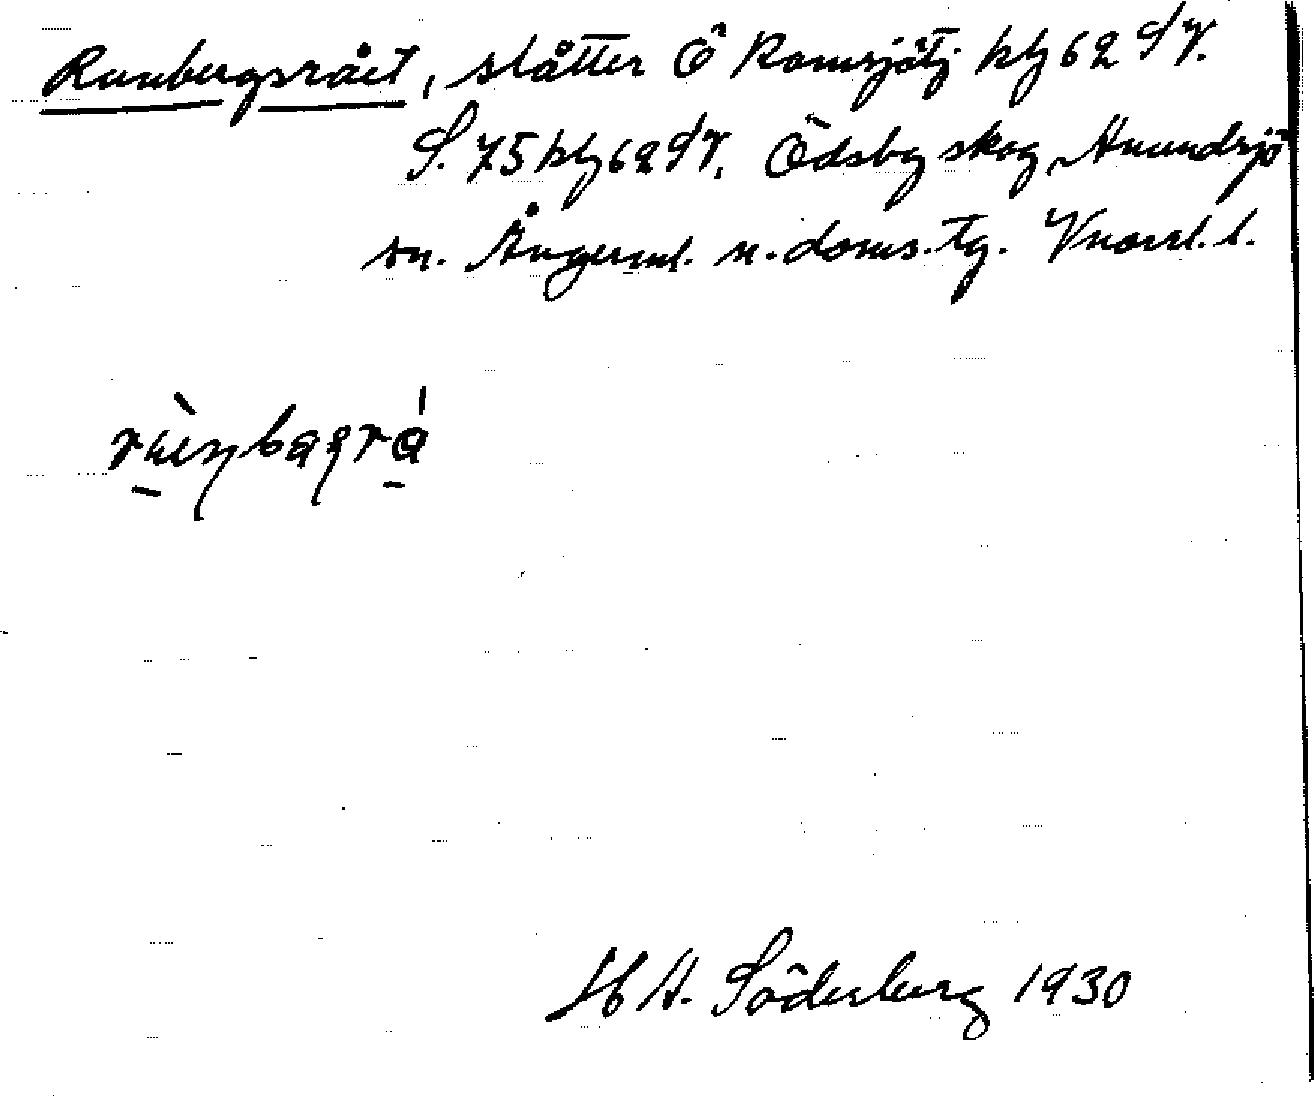 Runbergsrået, slåtter Ö Ramsjötj kbl 62 SV.
S. 75 kbl 62 SV. Ödsby skog, Anundsjö
sn. Ångerml. n. doms. tg. Vnorrl. l.
H A. Söderberg 1930